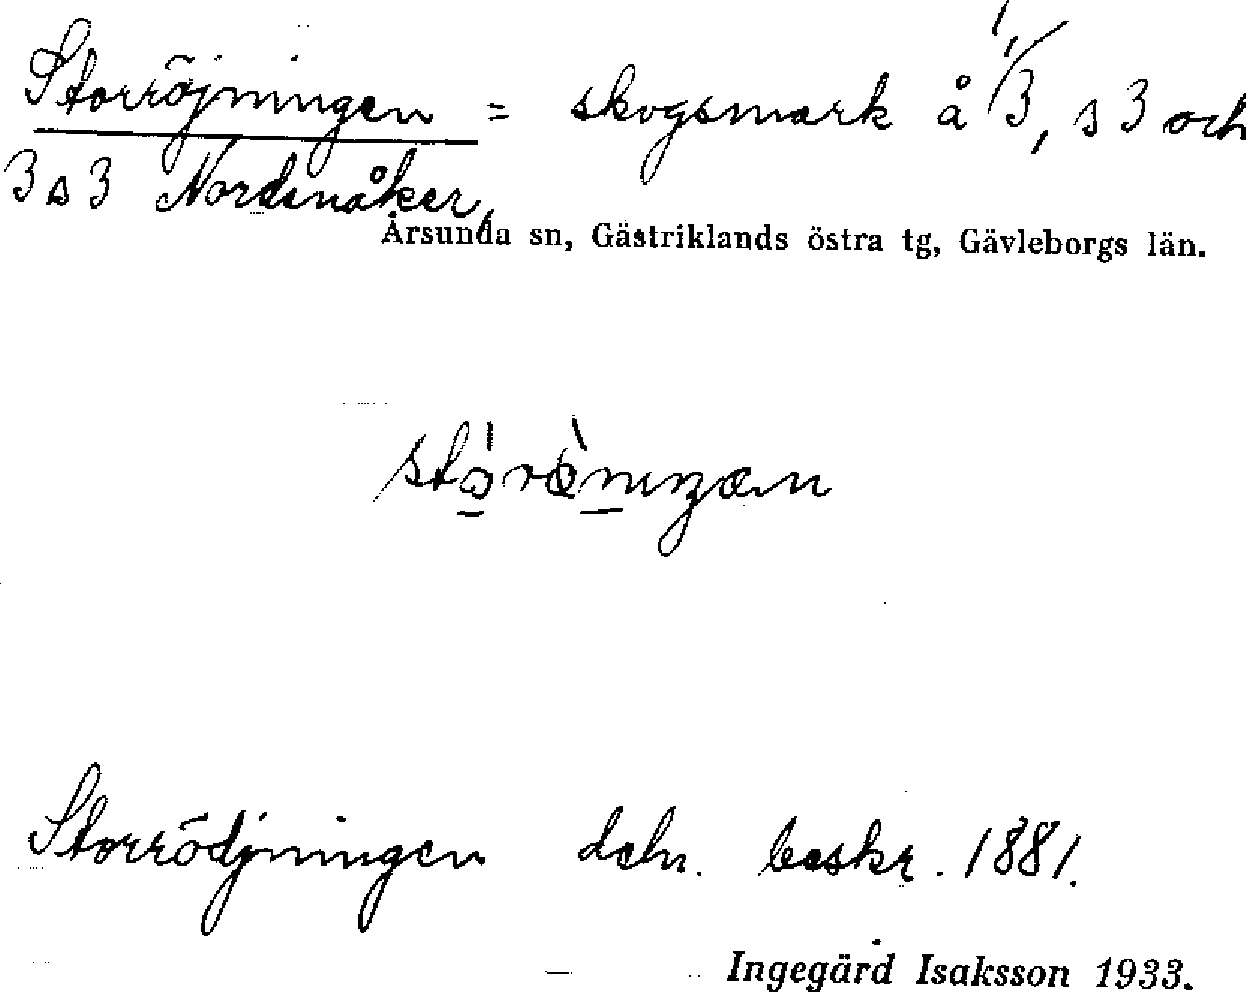 Storröjningen = skogsmark å 1/3, s 3 och
3 s 3 Nordsnåker,
Årsunda sn, Gästriklands östra tg, Gävleborgs län.
Storrödjningen deln. beskr. 1881.
Ingegärd Isaksson 1933.